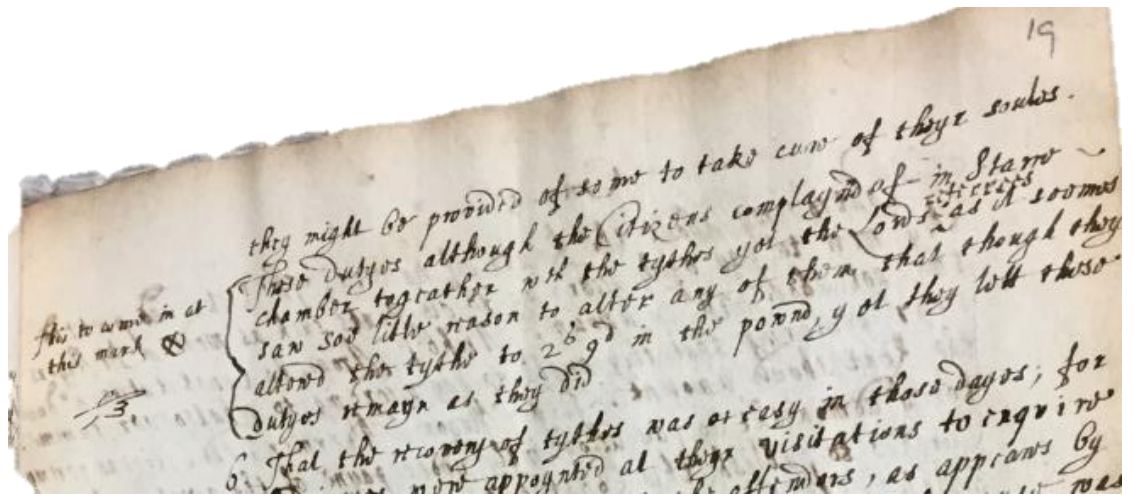 19
they might be provided of some to take cure of theyr soules.
These dutyes although the Citizens complaynd of in Starre
chamber togeather wth the tythes yet the Lords referrees as it seemes
saw soe litle reason to alter any of them, that though they
altered the tythe to 2s 9d in the pownd, yet they left these
dutyes remayn as they did
This to come in at
this mark
6. That the recovery of tythes was easy in those dayes; for
were appoynted at theyr visitations to enquire
the offendors, as appeares by
was